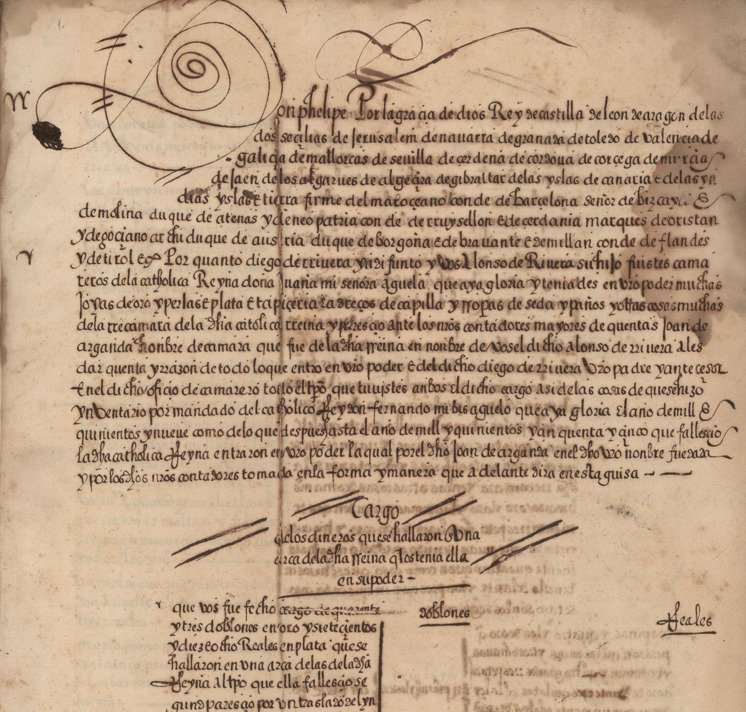 on phelipe Por la gracia de dios Rey de castilla de leon de aragon delas
dos secilias de Jerusalem de navarra de granada de toledo de valencia de
galiçia de mallorcas de sevilla de çerdeña de cordova de corçega de murcia
de Jaen delos algarves de algezira de gibraltar delas yslas de canaria E delas yn
dias yslas E tierra firme del mar oçeano conde de barcelona señor de bizcaya E
de molina duque de atenas y de neopatria conde de rruysellon E de cerdania marques de oristan
y de goçiano archiduque de austria duque de borgoña E de bravante E de millan conde de flandes
y de tirol Eª Por quanto diego de rrivera ya difunto y vos Alonso de Rivera su hijo fuistes cama
reros dela catholica Reyna doña Juana mi señora aguela que aya gloria y teniades en vro poder muchas
Joyas de oro y perlas E plata E tapiçeria adreços de capilla y rropas de seda y paños y otras cosas muchas
dela rrecamara dela dha catolica rreina y ante los nros contadores mayores de quentas Joan de
arganda honbre de camara que fue dela dha rreina en nonbre de vos el dicho Alonso de rrivera Ales
dar quenta y rrazon de todo lo que entro en vro poder E del dicho diego de rrivera vro padre y antecesor
En el dicho ofiçio de camarero todo el tpo que tuvistes anbos el dicho cargo Asi delas cosas de que se hizo
ynventario por mandado del catholico Rey don fernando mi bisaguelo que aya gloria el año de mill E
quinientos y nueve como delo que despues hasta el año de mill y quinientos y çinquenta y çinco que fallesçio
la dha catholica Reyna entraron en vro poder la qual por el dho Joan de arganda en el dho vro nonbre fue dada
y por los dhos nros contadores tomada en la forma y manera que adelante dira en esta guisa
Cargo
delos dineros que se hallaron en Una
arca dela dha rreina q los tenia ella
en su poder
que vos fue fecho cargo de quarenta
doblones
Reales
y tres doblones en oro y sietecientos
y diez e ocho Reales en plata que se
hallaron en una arca delas dela dha
Reyna Al tpo que ella fallesçio se
gund paresçio por un traslado del yn